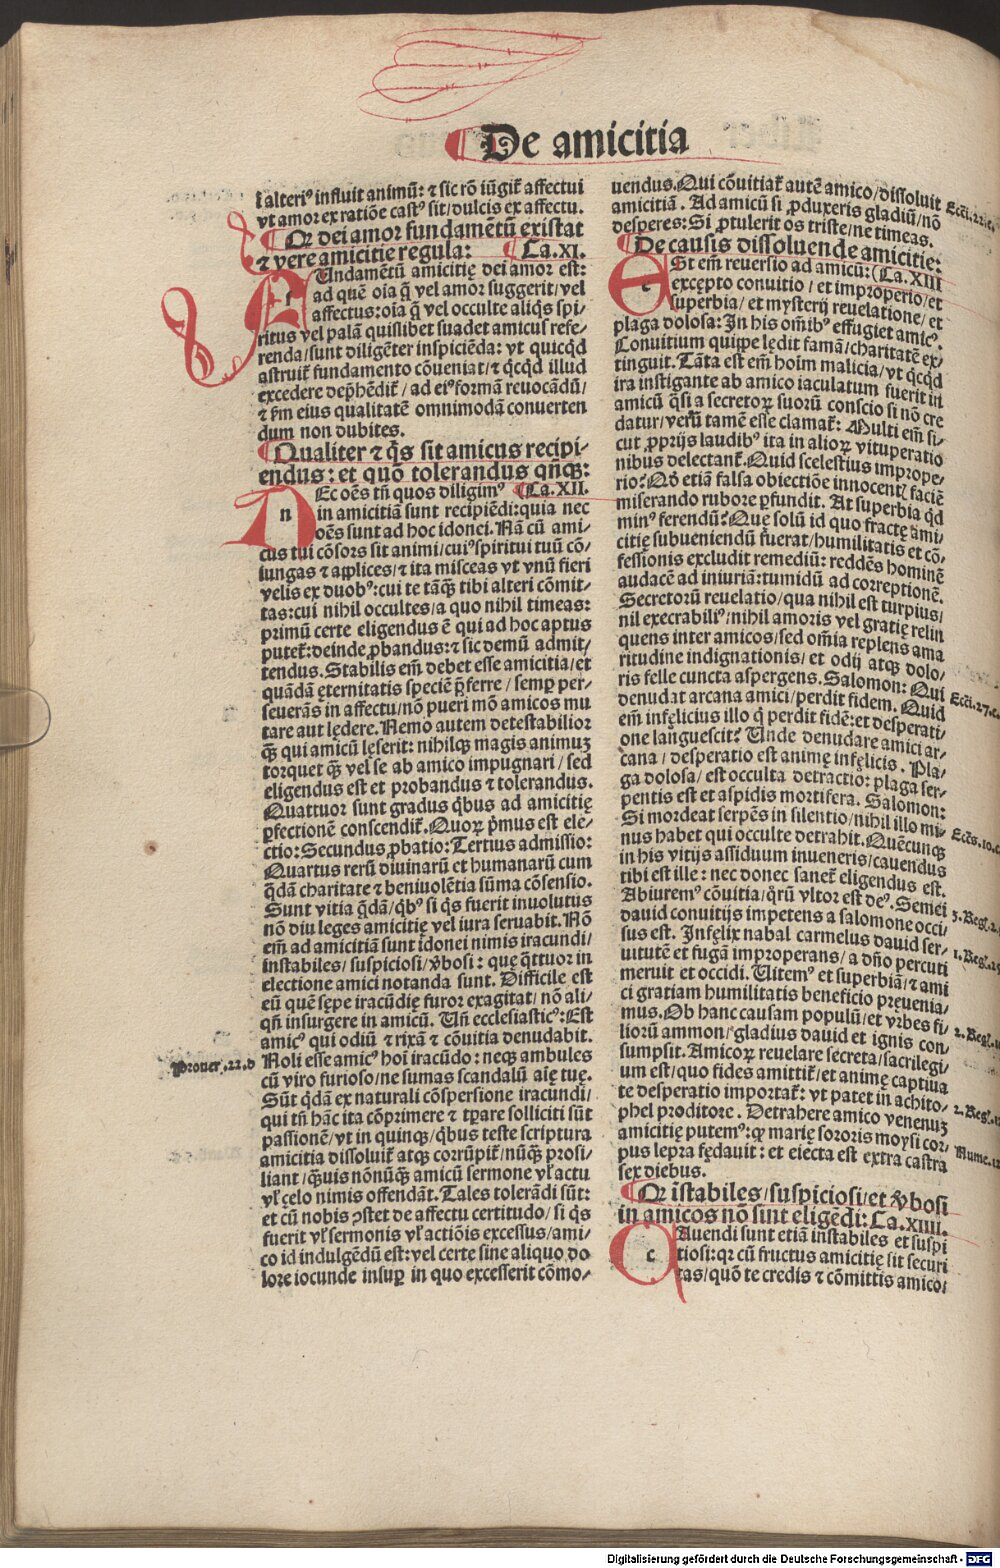 De amicitia
ſ alteriꝰ influit animū: ⁊ ſic rō iūgit̄ affectui
vt amor ex ratiōe caſtꝰ ſit/dulcis ex affectu.
¶ Qꝛ dei amor fundamētū exiſtat
⁊ vere amicitie regula: ¶ Ca.XI.
f Undamētū amicitię dei amor eſt:
ad quē oīa q̄ vel amor ſuggerit/vel
affectus: oīa q̄ vel occulte aliq̇s ſpi⸗
ritus vel palā quiſlibet ſuadet amicus refe⸗
renda/ſunt diligēter inſpiciēda: vt quicq̇d
aſtruit̄ fundamento cōueniat/⁊ q̇cq̇d illud
excedere dep̄hēdit̄/ad eiꝰ formā reuocādū/
⁊ ẜm eius qualitatē omnimodā conuerten
dum non dubites.
¶ Qualiter ⁊ q̇s ſit amicus recipi⸗
endus: et quō tolerandus qn̄qꝫ:
n Ec oēs tn̄ quos diligimꝰ ¶ Ca.XII.
in amicitiā ſunt recipiēdi: quia nec
oēs ſunt ad hoc idonei. Nā cū ami⸗
cus tui cōſors ſit animi/cuiꝰ ſpiritui tuū cō⸗
iungas ⁊ applices/⁊ ita miſceas vt vnū fieri
velis ex duobꝰ: cui te tāqꝫ tibi alteri cōmit⸗
tas: cui nihil occultes/a quo nihil timeas:
primū certe eligendus ē qui ad hoc aptus
putet̄: deinde ꝓbandus: ⁊ ſic demū admit⸗
tendus. Stabilis em̄ debet eſſe amicitia/et
quādā ęternitatis ſpeciē p̄ferre/ſemꝑ per⸗
ſeuerās in affectu/nō pueri mō amicos mu
tare aut lędere. Nemo autem deteſtabilior
qꝫ qui amicū lęſerit: nihilqꝫ magis animuꝫ
torquet qꝫ vel ſe ab amico impugnari/ſed
eligendus eſt et probandus ⁊ tolerandus.
Quattuor ſunt gradus q̇bus ad amicitię
ꝑfectionē conſcendit̄. Quoꝝ p̄mus eſt ele⸗
ctio: Secundus ꝓbatio: Tertius admiſſio:
Quartus rerū diuinarū et humanarū cum
q̄dā charitate ⁊ beniuolētia ſūma cōſenſio.
Sunt vitia q̄dā/q̇bꝰ ſi q̇s fuerit inuolutus
nō diu leges amicitię vel iura ſeruabit. Nō
em̄ ad amicitiā ſunt idonei nimis iracundi/
inſtabiles/ſuſpicioſi/v̄boſi: quę q̄ttuor in
electione amici notanda ſunt. Difficile eſt
eū quē ſępe iracūdię furor exagitat/nō ali⸗
qn̄ inſurgere in amicū. Un̄ eccleſiaſticꝰ: Eſt
amicꝰ qui odiū ⁊ rixā ⁊ cōuitia denudabit.
Prouer.22.d Noli eſſe amicꝰ hoī iracūdo: neqꝫ ambules
cū viro furioſo/ne ſumas ſcandalū aīę tuę.
Sūt q̇dā ex naturali cōſperſione iracundi/
qui tn̄ hāc ita cōprimere ⁊ tꝑare ſolliciti ſūt
paſſionē/vt in quinqꝫ/q̇bus teſte ſcriptura
amicitia diſſoluit̄ atqꝫ corrūpit̄/nūqꝫ proſi⸗
liant/qꝫuis nōnūqꝫ amicū ſermone vł actu
vł celo nimis offendāt. Tales tolerādi ſūt:
et cū nobis ꝯſtet de affectu certitudo/ſi q̇s
fuerit vł ſermonis vł actiōis exceſſus/ami⸗
co id indulgēdū eſt: vel certe ſine aliquo do
lore iocunde inſuꝑ in quo exceſſerit cōmo⸗
uendus. Qui cōuitiat̄ autē amico/diſſoluit Ecci.22.c.
amicitiā. Ad amicū ſi ꝓduxeris gladiū/nō
deſperes: Si ꝓtulerit os triſte/ne timeas.
¶ De cauſis diſſoluende amicitie:
e St em̄ reuerſio ad amicū: (Ca.XIII
excępto conuitio/et improperio/et
ſuperbia/et myſterij reuelatione/et
plaga doloſa: In his om̄ibꝰ effugiet amicꝰ.
Conuitium quippe lędit famā/charitatē ex⸗
tinguit. Tāta eſt em̄ hoīm malicia/vt q̇cq̇d
ira inſtigante ab amico iaculatum fuerit in
amicū q̄ſi a ſecretoꝝ ſuorū conſcio ſi nō cre
datur/verū tamē eſſe clamat̄: Multi em̄ ſi⸗
cut ꝓprijs laudibꝰ ita in alioꝝ vituperatio
nibus delectant̄. Quid ſceleſtius imprope⸗
rio? Qd̓ etiā falſa obiectiōe innocentꝭ faciē
miſerando rubore ꝑfundit. At ſuperbia q̇d
minꝰ ferendū? Que ſolū id quo fractę ami⸗
citię ſubueniendū fuerat/humilitatis et cō⸗
feſſionis excludit remediū: reddēs hominē
audacē ad iniuriā: tumidū ad correptionē.
Secretorū reuelatio/qua nihil eſt turpius/
nil execrabiliꝰ/nihil amoris vel gratię relin
quens inter amicos/ſed om̄ia replens ama
ritudine indignationis/et odij atqꝫ dolo⸗
ris felle cuncta aſpergens. Salomon: Qui
denudat arcana amici/perdit fidem. Quid Ecci.27.c.
em̄ infęlicius illo q̇ perdit fidē: et deſperati⸗
one langueſcit? Unde denudare amici ar⸗
cana/deſperatio eſt animę infęlicis. Pla⸗
ga doloſa/eſt occulta detractio: plaga ſer⸗
pentis eſt et aſpidis mortifera. Salomon:
Si mordeat ſerpēs in ſilentio/nihil illo mi⸗ Eccs.10.c
nus habet qui occulte detrahit. Quēcunqꝫ
in his vitijs aſſiduum inueneris/cauendus
tibi eſt ille: nec donec ſanet̄ eligendus eſt.
Abiuremꝰ cōuitia/q̄rū vltor eſt deꝰ. Semei
dauid conuitijs impetens a ſalomone occi⸗ 3.Reg.2.
ſus eſt. Infęlix nabal carmelus dauid ſer⸗
uitutē et fugā improperans/a dn̄o percuti 1.Reg.25
meruit et occidi. Uitemꝰ et ſuperbiā/⁊ ami
ci gratiam humilitatis beneficio pręuenia⸗
mus. Ob hanc cauſam populū/et vrbes fi⸗
liorū ammon/gladius dauid et ignis con⸗ 2.Reg.1
ſumpſit. Amicoꝝ reuelare ſecreta/ſacrilegi⸗
um eſt/quo fides amittit̄/et animę captiua
te deſperatio importat̄: vt patet in achito⸗
phel proditore. Detrahere amico venenuꝫ 2.Reg.1
amicitię putemꝰ: qꝫ marię ſororis moyſi cor⸗
pus lepra fędauit: et eiecta eſt extra caſtra Nume.12
ſex diebus.
¶ Qꝛ iſtabiles/ſuſpicioſi/et v̄boſi
in amicos nō ſint eligēdi: Ca.XIIII.
c Auendi ſunt etiā inſtabiles et ſuſpi
tioſi: qꝛ cū fructus amicitię ſit ſecuri
tas/quō te credis ⁊ cōmittis amico:
Digitalisierung gefördert durch die Deutsche Forschungsgemeinschaft - DFG